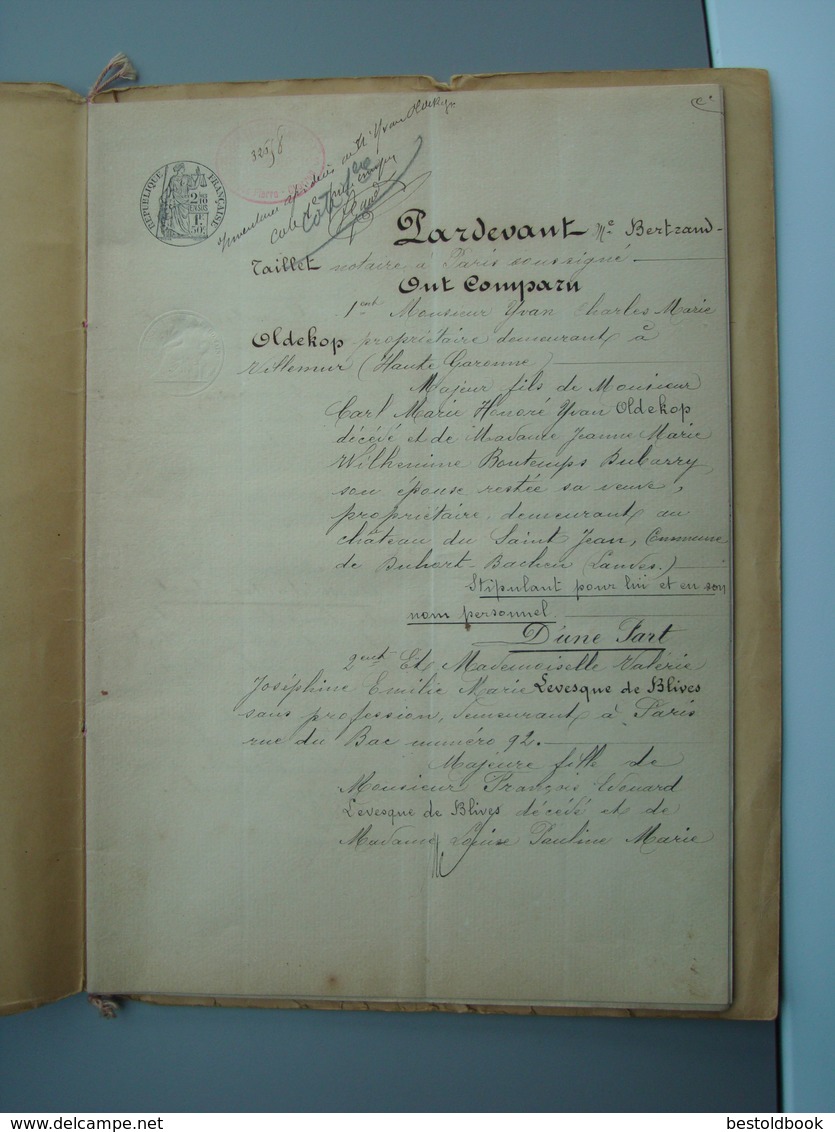 32598
RÉPUBLIQUE FRANÇAISE
2/10 EN SUS
1F 50c
Inventaire après décès de Mr Yvan Oldekop
Cote
Pardevant Me Bertrand-
Taillet notaire à Paris soussigné
Ont Comparu
1ent Monsieur Yvan Charles Marie
Oldekop propriétaire demeurant à
Villemur (Haute Garonne)
Majeur fils de Monsieur
Carl Marie Honoré Yvan Oldekop
décédé et de Madame Jeanne Marie
Wilhemine Bontemps Dubarry
son épouse restée sa veuve,
propriétaire, demeurant au
château du Saint Jean, Commune
de Duhort-Bachen (Landes.)
Stipulant pour lui et en son
nom personnel.
D'une Part
2ent Et Mademoiselle Valérie
Joséphine Emilie Marie Levesque de Blives
sans profession, demeurant à Paris
rue du Bac numéro 92.
Majeure fille de
Monsieur François Edouard
Levesque de Blives décédé et de
Madame Louise Pauline Marie
bestoldbook